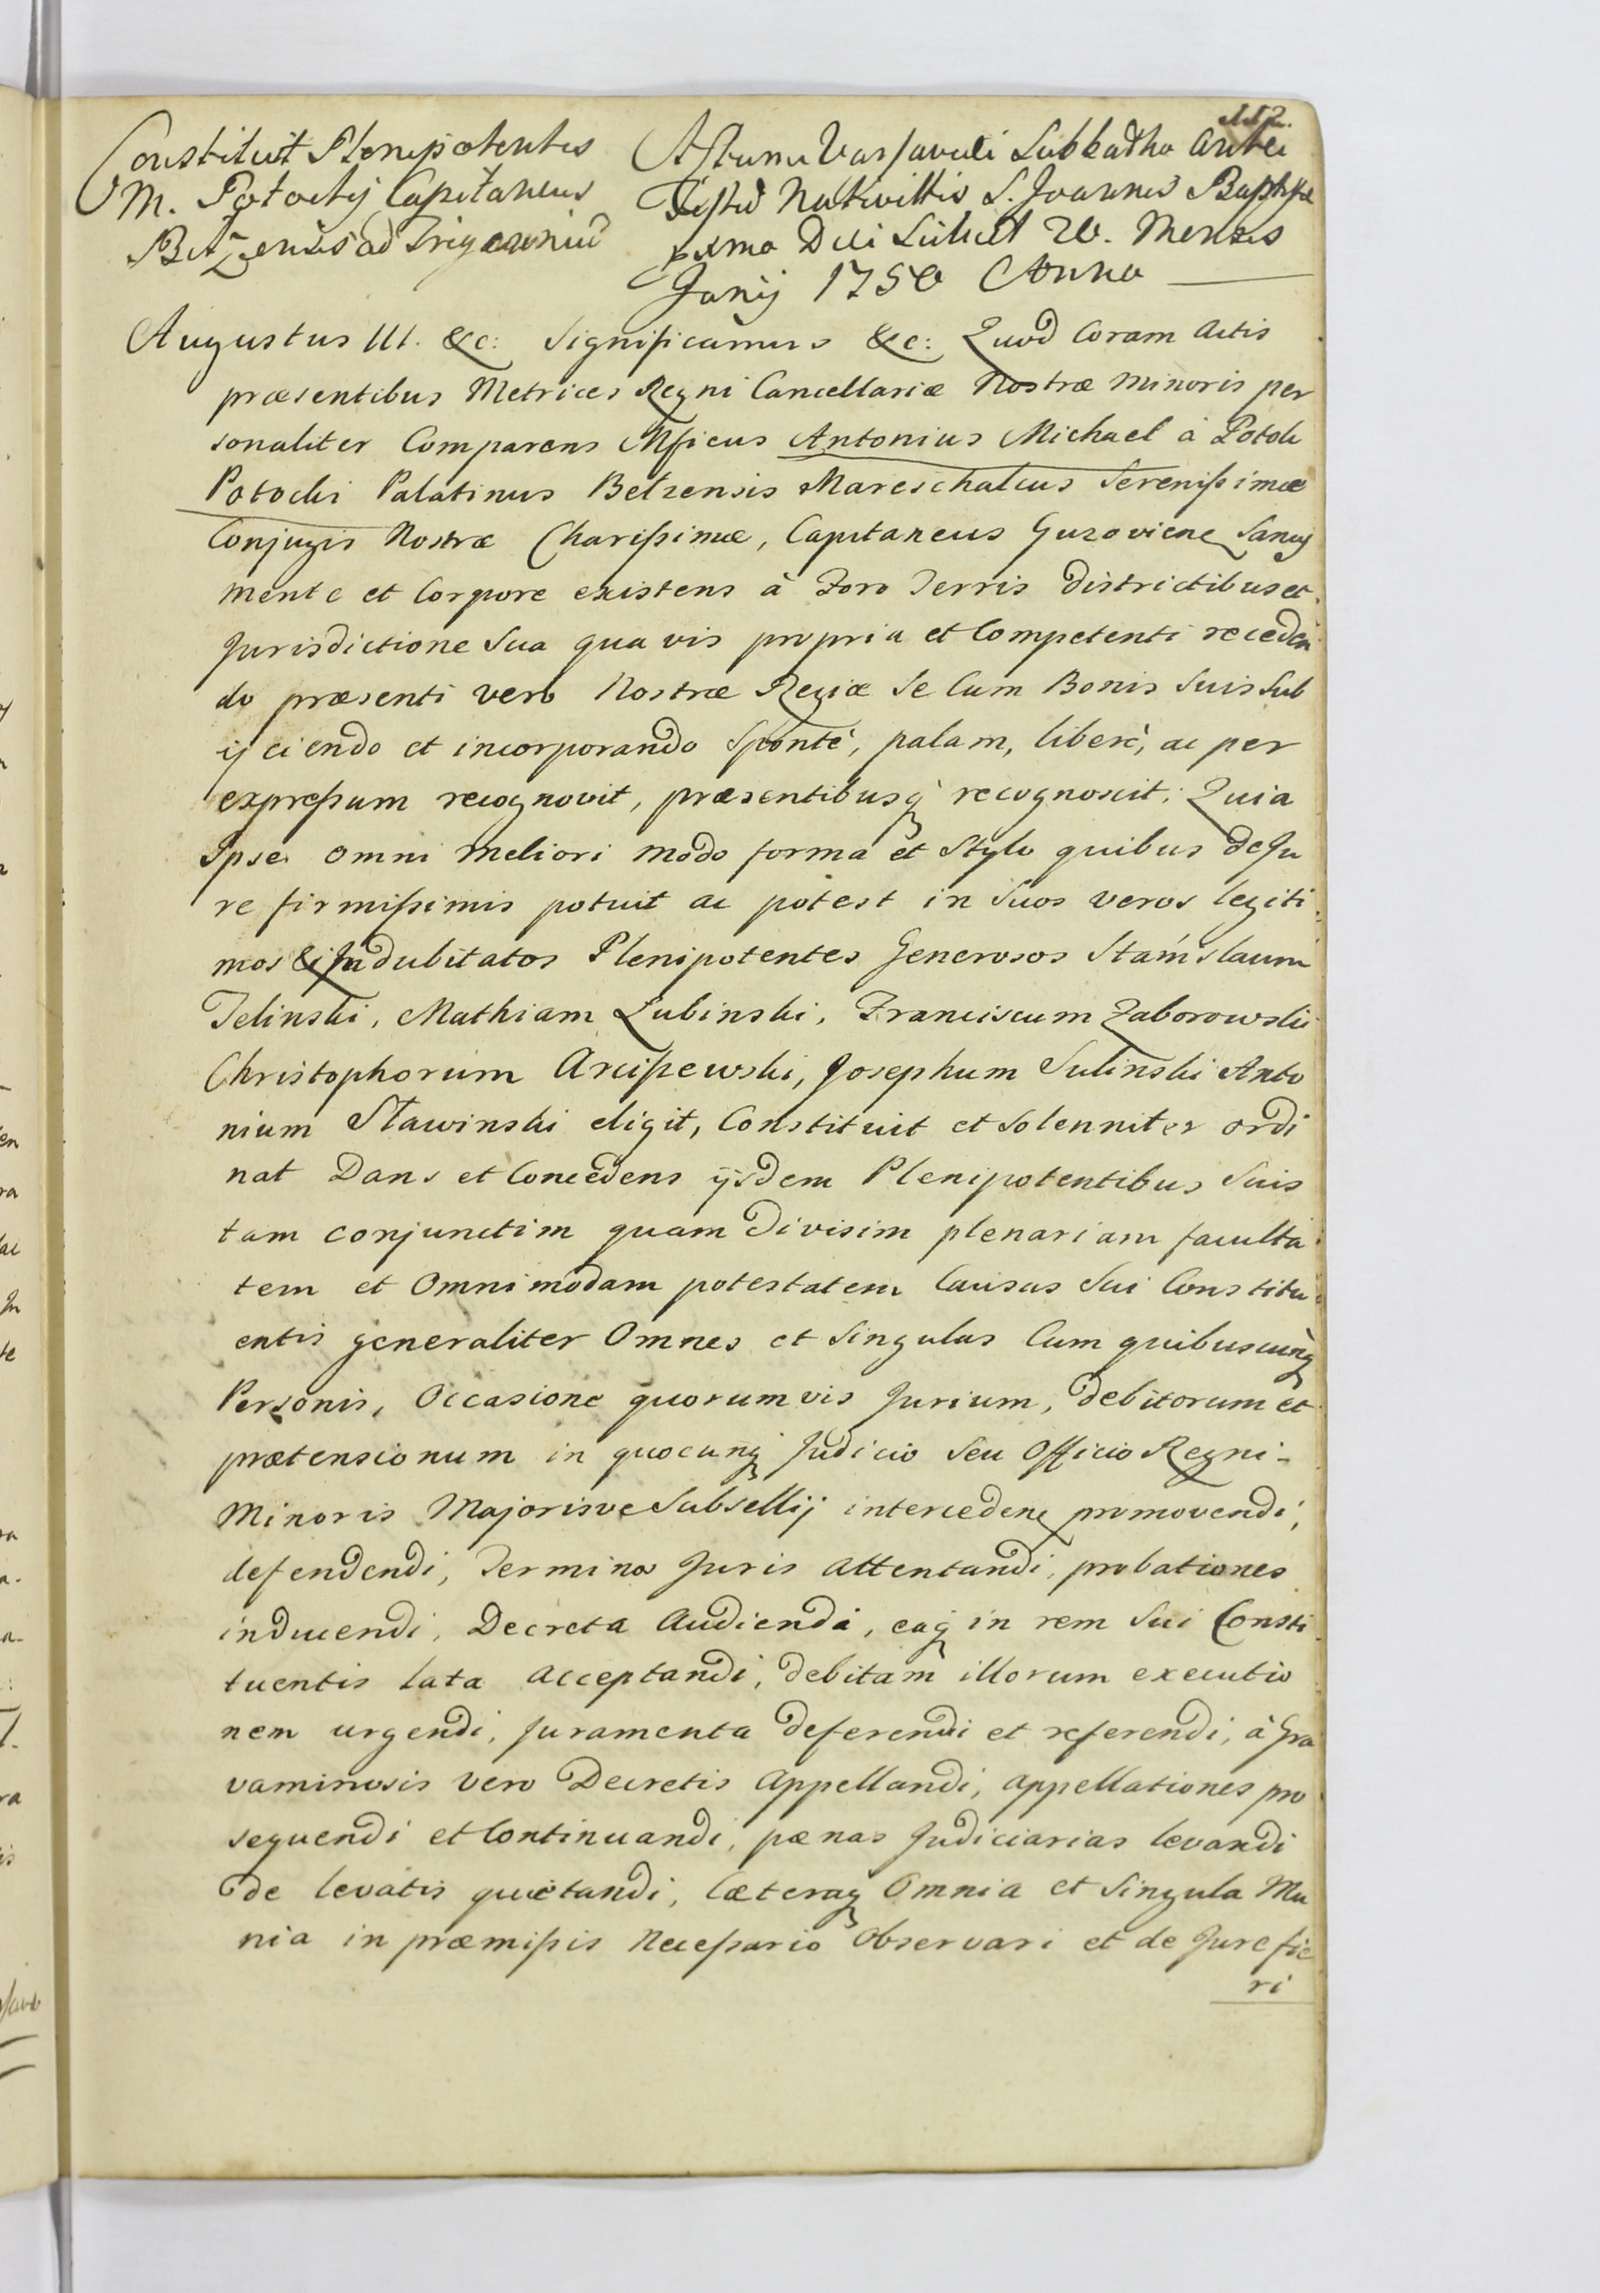 112.
Constituit Plenipotentes
M. Potockij Capitaneus
Belzensis ad
Actum Varsaviae Sabbatho Ante
Festu Nativittis S. Joannis Baptistae
pxmo Die Scilicet 20. Mensis
Junij 1750 Anno
Augustus III. &c: Significamus &c: Quod Coram Actis
præsentibus Metrices Regni Cancellariæ Nostræ Minoris per
sonaliter Comparens Mficus Antonius Michael à Potok
Potocki Palatinus Belzensis Mareschalcus Serenissimæ
Conjugis Nostræ Charissimæ, Capitaneus Guzoviene Sanus
mente et Corpore existens à Foro Terris Districtibus et
Jurisdictione Sua qua vis propria et Competenti receden
do præsenti vero Nostræ Regiæ Se Cum Bonis Suis Sub
ijciendo et incorporando Spontè, palam, liberè, ac per
expressum recognovit, præsentibusq recognoscit: Quia
Ipse Omni meliori modo forma et Stylo quibus de Ju
re firmissimis potuit ac potest in Suos veros legiti
mos & Indubitatos Plenipotentes Generosos Stanislaum
Jelinski, Mathiam Lubinski, Franciscum Zaborowski
Christophorum Arcissewski, Josephum Sulinski Anto
nium Stawinski eligit, Constituit et Solenniter ordi
nat Dans et Concedens ijsdem Plenipotentibus Suis
tam conjunctim quam Divisim plenariam faculta
tem et Omnimodam potestatem Causas Sui Constitu
entis generaliter Omnes et Singulas Cum quibuscunq
Personis, Occasione quorumvis Jurium, debitorum et
prætensionum in quocunq Judicio Seu Officio Regni
Minoris Majorisve Subsellij intercedene promovendi,
defendendi, Termino Juris attentandi, probationes
inducendi, Decreta Audiendi, eaq in rem Sui Consti
tuentis lata acceptandi, debitam illorum executio
nem urgendi, Juramenta deferendi et referendi, à Gra
vaminosis vero Decretis Appellandi, appellationes pro
sequendi et Continuandi, pænas Judiciarias levandi
de levatis quietandi, Cæteraq Omnia et Singula Mu
nia in præmissis Necessario Observari et de Jure fie
ri